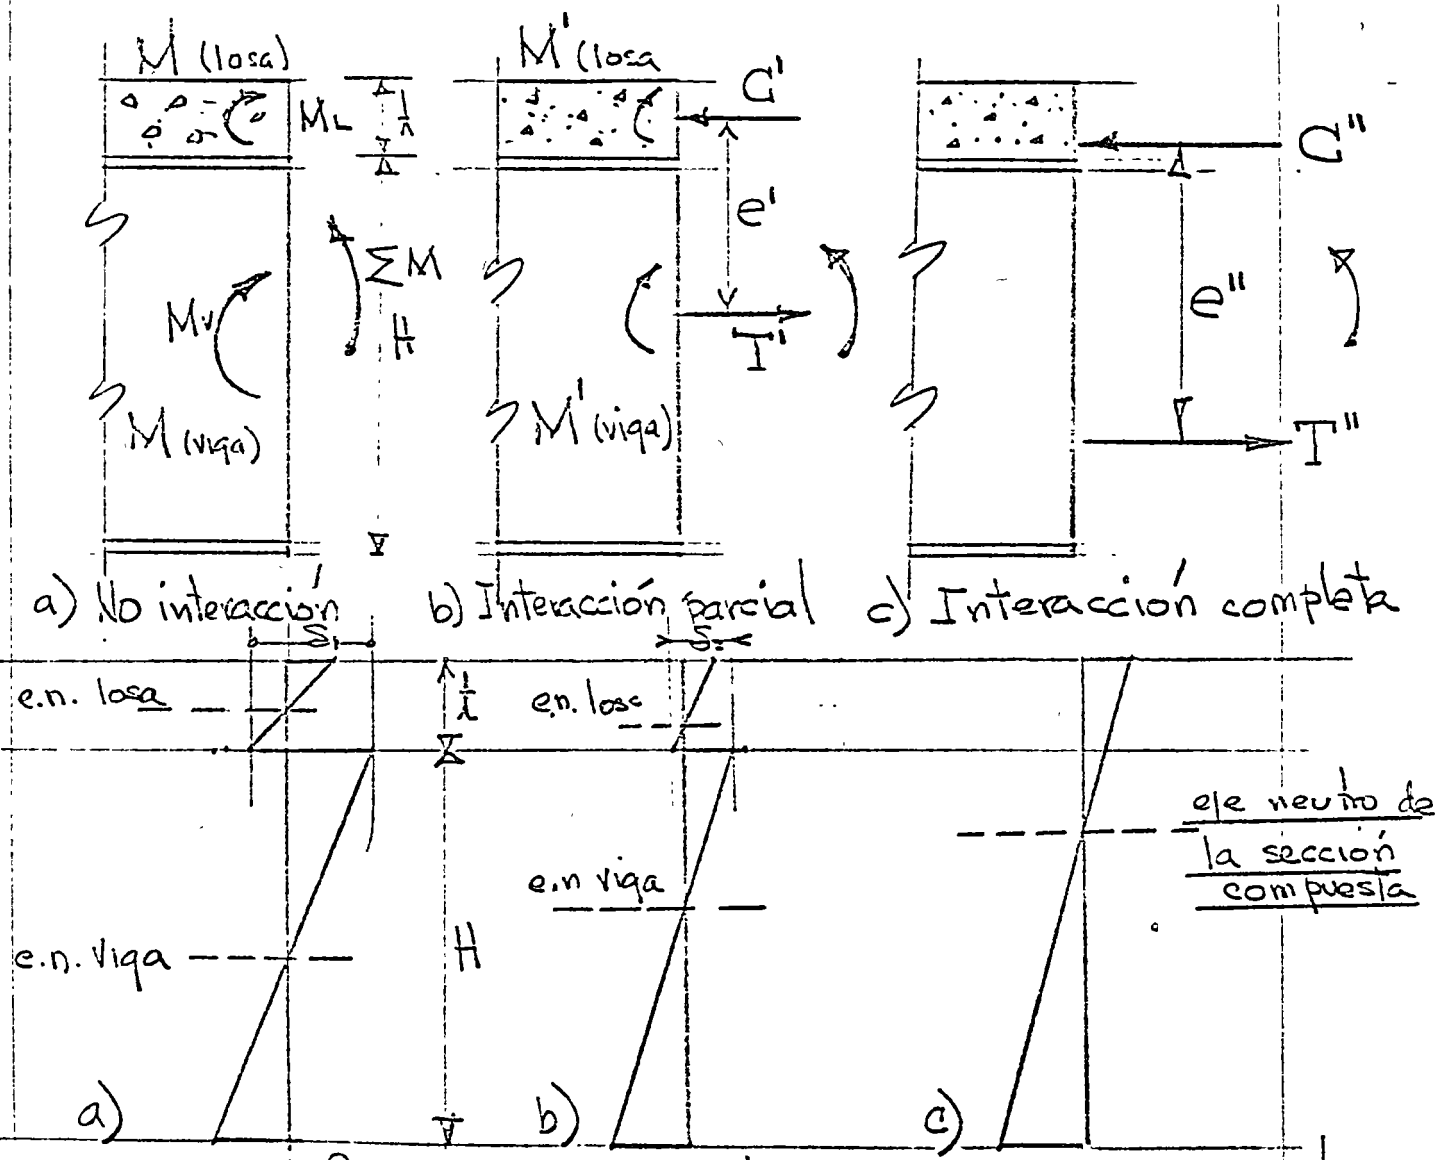 M (losa)
M' (losa
C'
ML
h
C"
e'
ΣM
e"
Mv
H
T'
T"
M (viga)
M' (viga)
a) No interacción
b) Interacción parcial
c) Interacción completa
e.n. losa
e.n. losa
eje neutro de
la sección
compuesta
e.n viga
e.n. Viga
H
a)
b)
c)